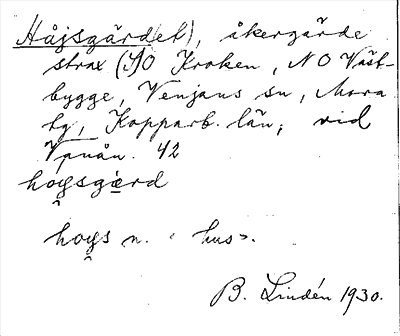 Håjsgärdet), åkergärde
strax (S)O Kroken, NO Väst-
bygge, Venjans sn, Mora
tg, Kopparb. län; vid
Vpnån. 42
hoysgærd
hoys n. ‹hus›.
B. Lindén 1930.